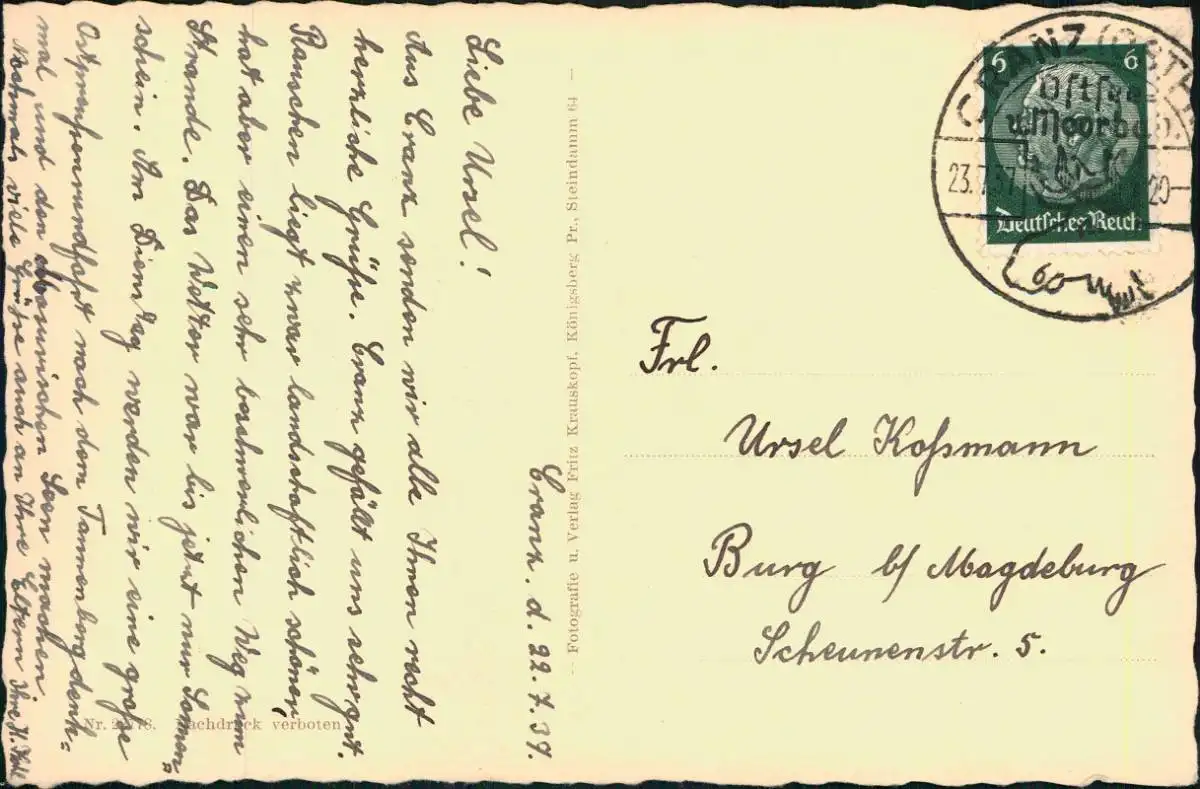 Cranz. d. 22.7.37.
Liebe Ursel!
Aus Cranz senden wir alle Ihnen recht
herzliche Grüße. Cranz gefällt uns sehr gut.
Rauschen liegt zwar landschaftlich schöner,
hat aber einen sehr beschwerlichen Weg zum
Strande. Das Wetter war bis jetzt nur Sonnen=
schein. Am Dienstag werden wir eine große
Ostpreußenrundfahrt nach dem Tannenbergdenk=
mal und den Masurischen Seen machen.
Nochmals viele Grüße auch an Ihre Eltern Ihre H.
Nr. Nachdruck verboten
– Fotografie u. Verlag Fritz Krauskopf, Königsberg Pr., Steindamm 64 –
CRANZ (OSTPR
Ostsee
u. Moorbad
23.7.37
20
6 6
Deutsches Reich
Frl.
Ursel Koßmann
Burg b/ Magdeburg
Scheunenstr. 5.